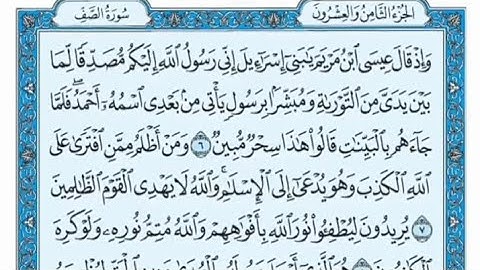 سُورَةُ الصَّفِّ
الجُزْءُ الثَّامِنُ وَالعِشْرُونَ
وَإِذْ قَالَ عِيسَى ابْنُ مَرْيَمَ يَٰبَنِىٓ إِسْرَٰٓءِيلَ إِنِّى رَسُولُ اللَّهِ إِلَيْكُم مُّصَدِّقًا لِّمَا
بَيْنَ يَدَىَّ مِنَ التَّوْرَىٰةِ وَمُبَشِّرًۢا بِرَسُولٍ يَأْتِى مِنۢ بَعْدِى اسْمُهُۥٓ أَحْمَدُ ۖ فَلَمَّا
جَآءَهُم بِالْبَيِّنَٰتِ قَالُوا۟ هَٰذَا سِحْرٌ مُّبِينٌ ٦ وَمَنْ أَظْلَمُ مِمَّنِ افْتَرَىٰ عَلَى
اللَّهِ الْكَذِبَ وَهُوَ يُدْعَىٰٓ إِلَى الْإِسْلَٰمِ ۚ وَاللَّهُ لَا يَهْدِى الْقَوْمَ الظَّٰلِمِينَ
٧ يُرِيدُونَ لِيُطْفِـُٔوا۟ نُورَ اللَّهِ بِأَفْوَٰهِهِمْ وَاللَّهُ مُتِمُّ نُورِهِۦ وَلَوْ كَرِهَ